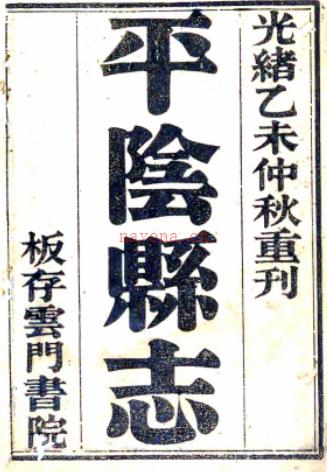 光緒乙未仲秋重刊
平陰縣志
板存雲門書院
nayona.cn